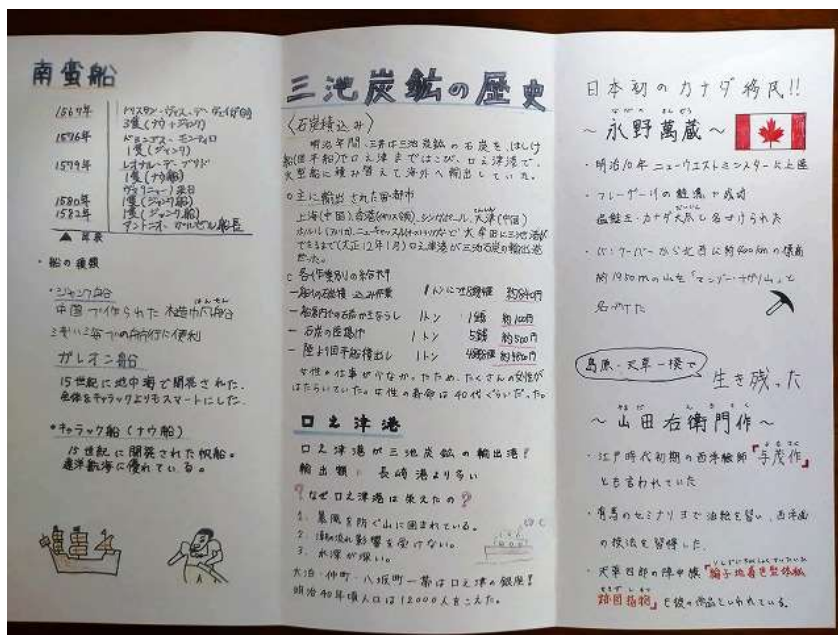 南蛮船
1567年 トリスタン・ヴァス・デ・ヴェイガ含む
3隻(ナウ+ジャンク)
1576年 ドミンゴス・モンテイロ
1隻(ジャンク)
1579年 レオナル・デ・ブリト
1隻(ナウ船)
ヴァリニャーノ来日
1580年 1隻(ジャンク船)
1582年 1隻(ジャンク船)
アントニオ・ガルセル船長
▲年表
・船の種類
・ジャンク船
中国で作られた木造帆船
はんせん
浅い海での航行に便利
ガレオン船
15世紀に地中海で開発された。
全体をキャラックよりもスマートにした。
・キャラック船(ナウ船)
15世紀に開発された帆船。
遠洋航海に優れている。
三池炭鉱の歴史
〈石炭積込み〉
明治年間、三井は三池炭鉱の石炭を、はしけ
船(団平船)で口之津まではこび、口之津港で、
大型船に積み替えて海外へ輸出していた。
○主に輸出された国・都市
上海(中国)、香港(イギリス領)、シンガポール、天津(中国)
てんしん
ホノルル(アメリカ)、ニューキャッスル(オーストラリア)など 大牟田に三池港が
できるまで(大正12年1月)口之津港が三池石炭の輸出港
だった。
○各作業別の給料
一船の石炭積込み作業 1トンにつき8銭4厘 約840円
一船艙内の石炭かきならし 1トン 1銭 約100円
一石炭の陸揚げ 1トン 5銭 約500円
一陸より団平船積出し 1トン
女性の仕事が少なかったため、たくさんの女性が
はたらいていた。女性の寿命は40代ぐらいだった。
口之津港
口之津港が三池炭鉱の輸出港!
輸出額は長崎港より多い
?なぜ口之津港は栄えたの?
1. 暴風を防ぐ山に囲まれている。
2. 潮の流れ影響を受けない。
3. 水深が深い。
大泊・仲町・八坂町一帯は口之津の銀座!
明治40年頃人口は12000人をこえた。
日本初のカナダ移民!!
ながの まんぞう
~永野萬蔵~
・明治10年 ニューウエストミンスターに上陸
・フレーザー川の鮭漁で成功
塩鮭王・カナダ大尽と名付けられた
だいじん
・バンクーバーから北西に約400kmの標高
約1950mの山を「マンゾー・ナガノ山」と
名づけた
島原・天草一揆で
生き残った
やまだ えもさく
~山田右衛門作~
・江戸時代初期の西洋絵師「与茂作」
よもさく
とも言われていた
・有馬のセミナリヨで油絵を習い、西洋画
の技法を習得した.
・天草四郎の陣中旗「綸子地着色聖体秘
蹟図指物」も彼の作品といわれている.